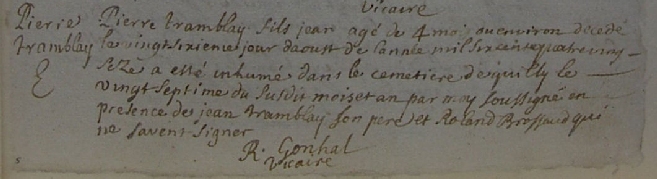 Vicaire
Pierre tramblay
Pierre tramblay fils jean agé de 4 mois ou environ decedé
le vingt sixieme jour daoust de lannée mil six cens quatre vingt
seze a esté inhumé dans le cemetiere de quilly le
vingt septime du susdit mois et an par moy soussigné en
presence de jean tramblay son pere et Roland Brossaud qui
ne savent signer
R. Gonhal
vicaire